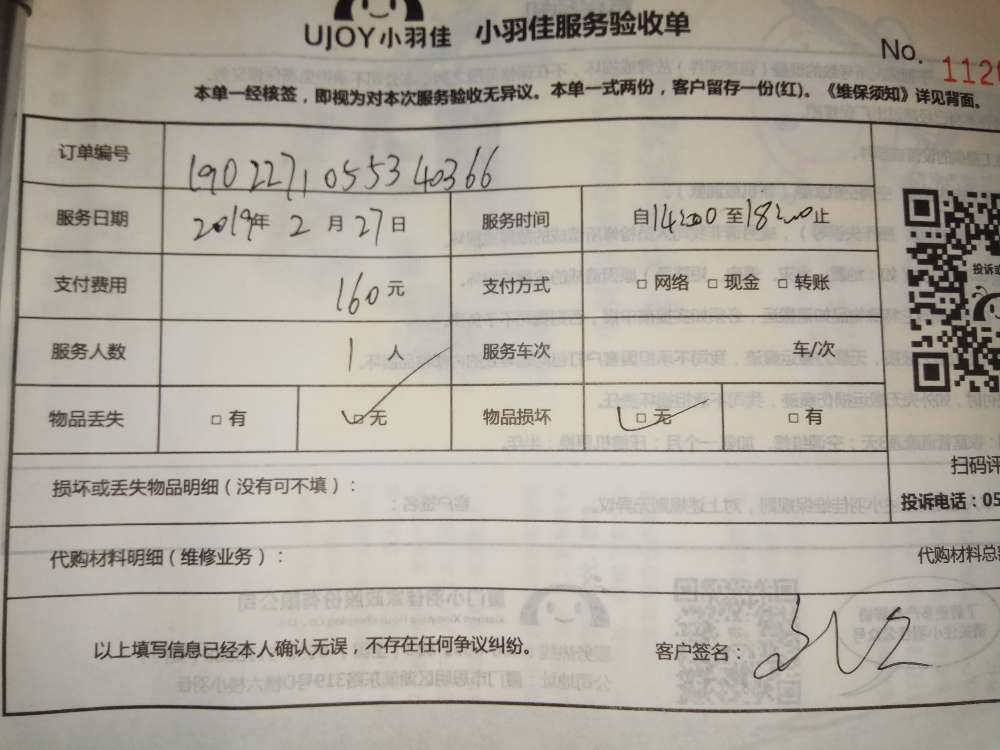 UJOY小羽佳 小羽佳服务验收单
No. 1120
本单一经核签，即视为对本次服务验收无异议。本单一式两份，客户留存一份(红)。《维保须知》详见背面。
订单编号 1902271055340366
服务日期 2019年 2 月 27 日 服务时间 自14:00 至18:00止
支付费用 160 元 支付方式 □ 网络 □ 现金 □ 转账
服务人数 1 人 服务车次 车/次
物品丢失 □ 有 ☑ 无 物品损坏 ☑ 无 □ 有
扫码评
损坏或丢失物品明细（没有可不填）：
投诉电话：05
代购材料明细（维修业务）： 代购材料总
以上填写信息已经本人确认无误，不存在任何争议纠纷。 客户签名：